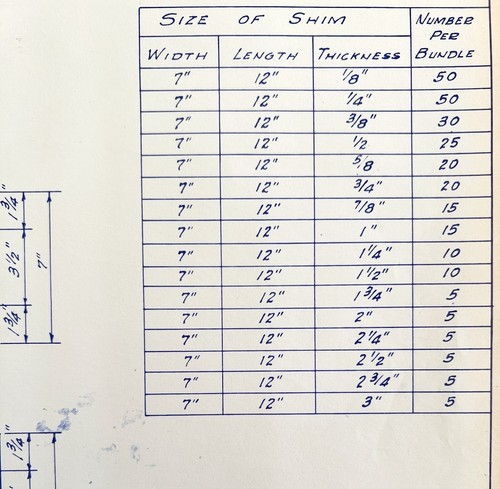 SIZE OF SHIM NUMBER PER BUNDLE
WIDTH LENGTH THICKNESS
7" 12" 1/8" 50
7" 12" 1/4" 50
7" 12" 3/8" 30
7" 12" 1/2 25
7" 12" 5/8 20
7" 12" 3/4" 20
7" 12" 7/8" 15
7" 12" 1" 15
7" 12" 1 1/4" 10
7" 12" 1 1/2" 10
7" 12" 1 3/4" 5
7" 12" 2" 5
7" 12" 2 1/4" 5
7" 12" 2 1/2" 5
7" 12" 2 3/4" 5
7" 12" 3" 5
1 3/4"
3 1/2"
7"
1 3/4"
1 3/4"